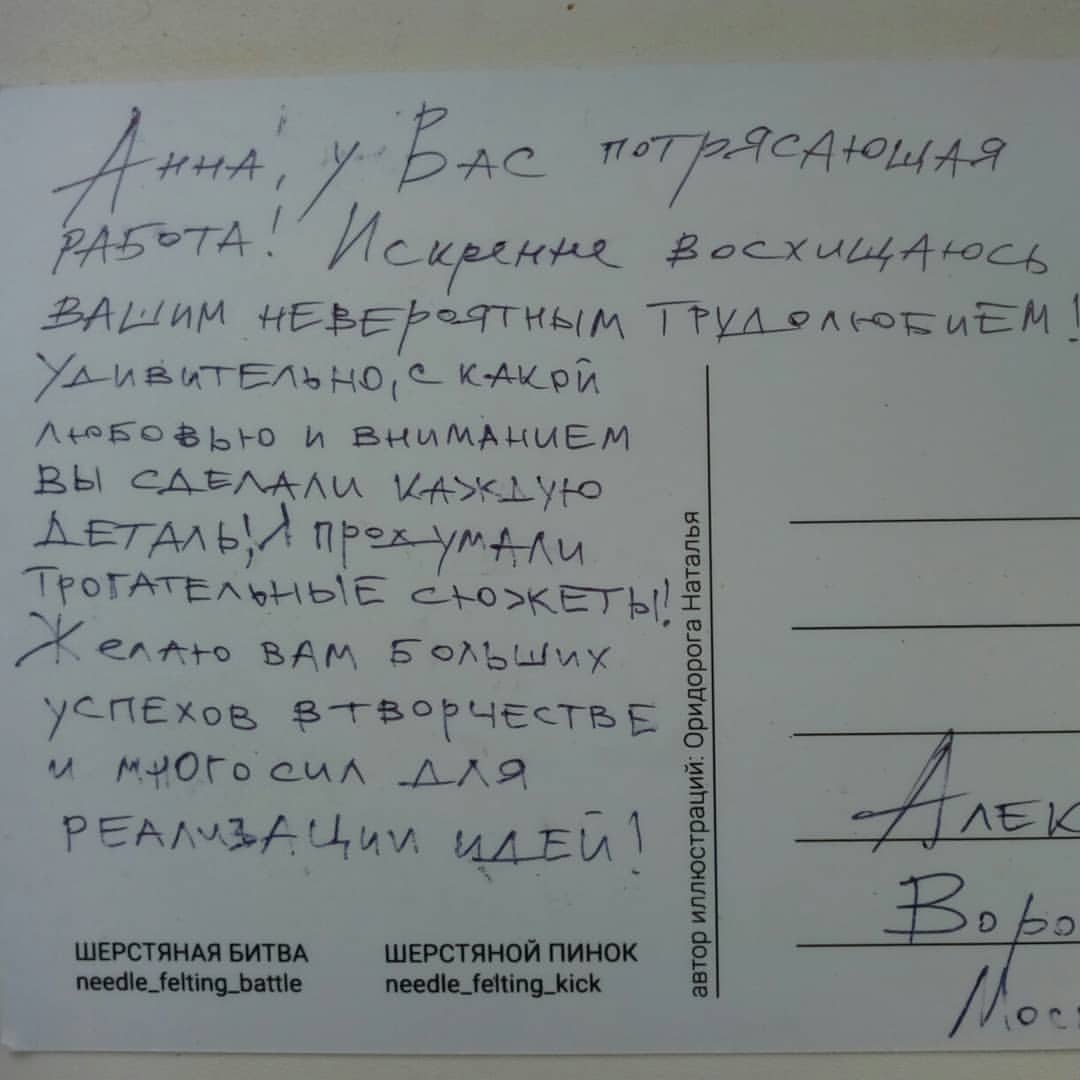 Анна, у Вас потрясающая
работа! Искренне восхищаюсь
вашим невероятным трудолюбием!
Удивительно, с какой
любовью и вниманием
вы сделали каждую
деталь! А
трогательные сюжеты!
Желаю вам больших
успехов в творчестве
и много сил для
реализации идей!
ШЕРСТЯНАЯ БИТВА
needle_felting_battle
ШЕРСТЯНОЙ ПИНОК
needle_felting_kick
автор иллюстраций: Оридорога Наталья
Алек
Воро
Мос